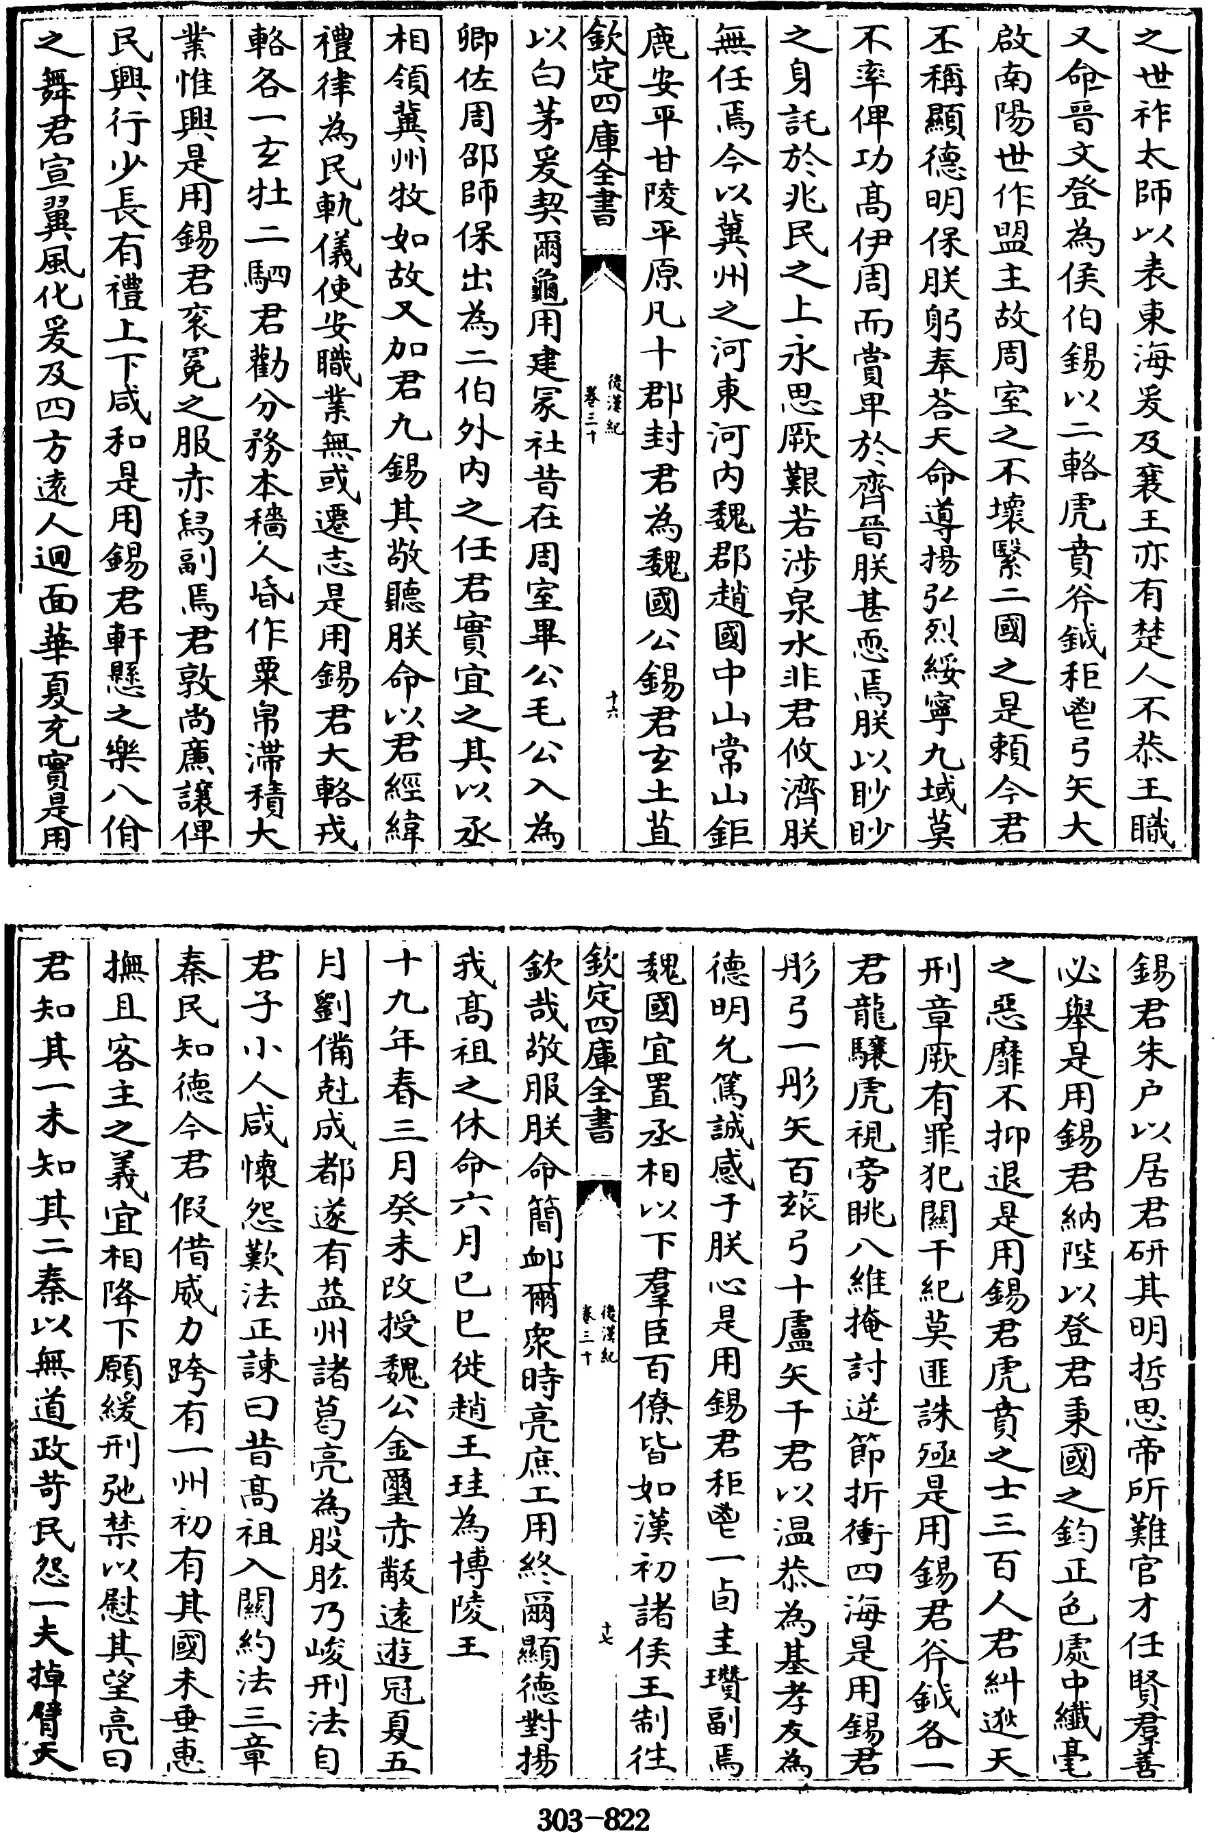 之世祚太師以表東海爰及襄王亦有楚人不恭王職
又命晉文登為侯伯錫以二輅虎賁斧鉞秬鬯弓矢大
啟南陽世作盟主故周室之不壞繄二國之是賴今君
丕稱顯德明保朕躬奉荅天命導揚弘烈綏寧九域莫
不率俾功髙伊周而賞卑於齊晉朕甚恧焉朕以眇眇
之身託於兆民之上永思厥艱若涉泉水非君攸濟朕
無任焉今以冀州之河東河内魏郡趙國中山常山鉅
鹿安平甘陵平原凡十郡封君為魏國公錫君玄土苴
欽定四庫全書
後漢紀
卷三十
十六
以白茅爰契爾龜用建冡社昔在周室畢公毛公入為
卿佐周邵師保出為二伯外内之任君實宜之其以丞
相領冀州牧如故又加君九錫其敬聽朕命以君經緯
禮律為民軌儀使安職業無或遷志是用錫君大輅戎
輅各一玄牡二駟君勸分務本穡人昏作粟帛滯積大
業惟興是用錫君衮冕之服赤舄副焉君敦尚廉讓俾
民興行少長有禮上下咸和是用錫君軒懸之樂八佾
之舞君宣翼風化爰及四方逺人迴面華夏充實是用
錫君朱户以居君研其明哲思帝所難官才任賢羣善
必舉是用錫君納陛以登君秉國之鈞正色處中纎毫
之惡靡不抑退是用錫君虎賁之士三百人君糾逖天
刑章厥有罪犯闗干紀莫匪誅殛是用錫君斧鉞各一
君龍驤虎視旁眺八維掩討逆節折衝四海是用錫君
彤弓一彤矢百玈弓十盧矢千君以温恭為基孝友為
德明允篤誠感于朕心是用錫君秬鬯一卣圭瓚副焉
魏國宜置丞相以下羣臣百僚皆如漢初諸侯王制往
欽定四庫全書
後漢紀
卷三十
十七
欽哉敬服朕命簡䘏爾衆時亮庶工用終爾顯德對揚
我髙祖之休命六月己巳徙趙王珪為博陵王
十九年春三月癸未改授魏公金璽赤黻逺遊冠夏五
月劉備尅成都遂有益州諸葛亮為股肱乃峻刑法自
君子小人咸懷怨歎法正諫曰昔髙祖入闗約法三章
秦民知德今君假借威力跨有一州初有其國未垂惠
撫且客主之義宜相降下願緩刑弛禁以慰其望亮曰
君知其一未知其二秦以無道政苛民怨一夫掉臂天
303-822